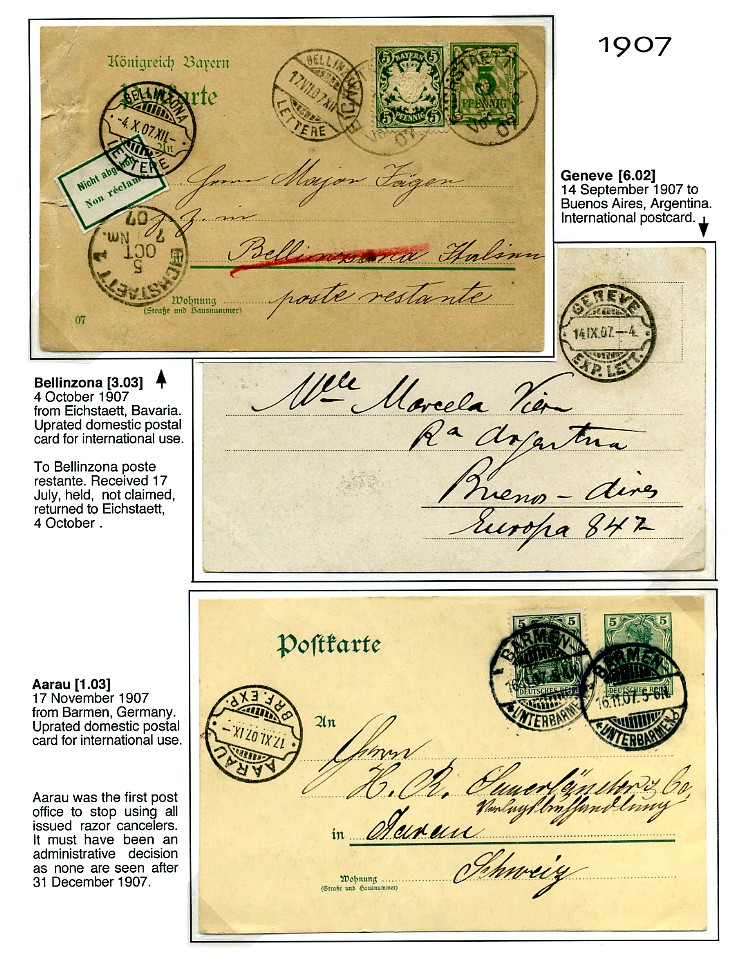 1907
Königreich Bayern
Postkarte
An
BAYERN
5 5
5 PFENNIG 5
5
PFENNIG
BELLINZONA
17.VII.07.XII
LETTERE
BELLINZONA
-4.X.07.XII-
LETTERE
Nicht abgeholt
Non réclamé
EICHSTAETT 1
5
OCT
7 Nm.
07
Herrn Major Jäger
z. Z. in
Bellinzona Italien
poste restante
Wohnung
(Straße und Hausnummer)
07
Geneve [6.02]
14 September 1907 to
Buenos Aires, Argentina.
International postcard.
GENEVE
14.IX.07.–4.
EXP. LETT.
Mlle Marcela Viera
Ra Argentina
Buenos-Aires
Europa 842
Bellinzona [3.03]
4 October 1907
from Eichstaett, Bavaria.
Uprated domestic postal
card for international use.
To Bellinzona poste
restante. Received 17
July, held, not claimed,
returned to Eichstaett,
4 October .
Postkarte
5 5
DEUTSCHES REICH
5 5
DEUTSCHES REICH
BARMEN-
16.11.07.
*UNTERBARMEN
BARMEN-
16.11.07.5-6N.
*UNTERBARMEN
AARAU
17.XI.07.IX-
BRF. EXP.
An
Herrn
H. R. Sauerländer & Co
Verlagsbuchhandlung
in Aarau
Schweiz
Wohnung
(Straße und Hausnummer)
Aarau [1.03]
17 November 1907
from Barmen, Germany.
Uprated domestic postal
card for international use.
Aarau was the first post
office to stop using all
issued razor cancelers.
It must have been an
administrative decision
as none are seen after
31 December 1907.